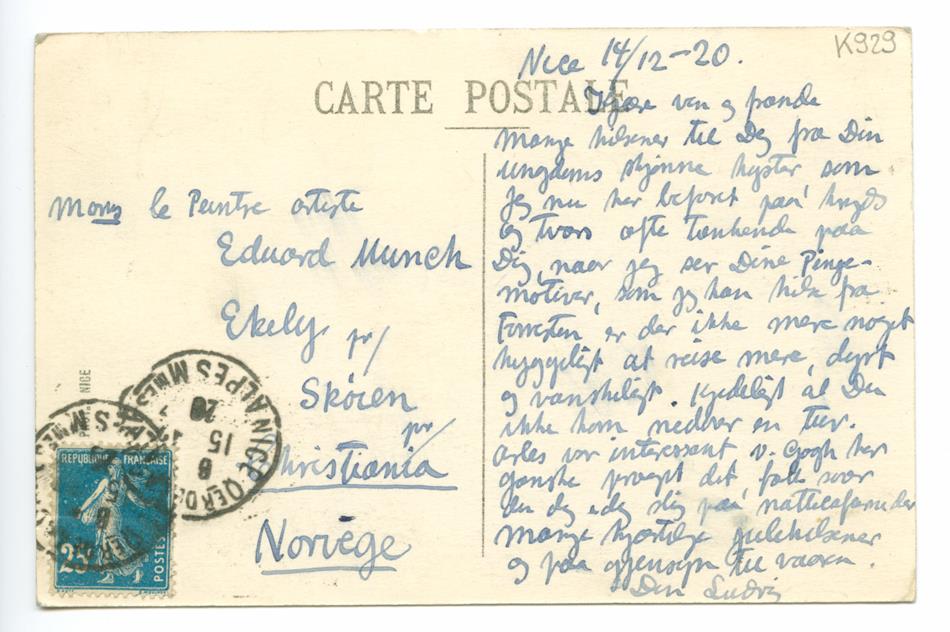 K929
CARTE POSTALE
Nice 14/12-20.
Kjære ven og frænde
Mange hilsener til Dig fra Din
ungdoms skjønne kyster som
jeg nu har beforet paa kryds
og tvers ofte tænkende paa
Dig, naar jeg ser Dine
motiver, som jeg kan hilse fra
Forresten er der ikke mere noget
hyggeligt at reise mere, dyrt
og vanskeligt. Kjedeligt at Du
ikke kom nedover en tur.
Arles var interessant v. Gogh har
ganske præget det folk
paa natticafeerne der
Mange hjertelige julehilsener
og paa gjensyn til vaaren.
Din Ludvig
Mons le Peintre artiste
Eduard Munch
Ekely pr/
Skøien
pr/
Christiania
Norvège
NICE
NICE
ALPES MMES
8
15
20
REPUBLIQUE FRANÇAISE
25c
POSTES